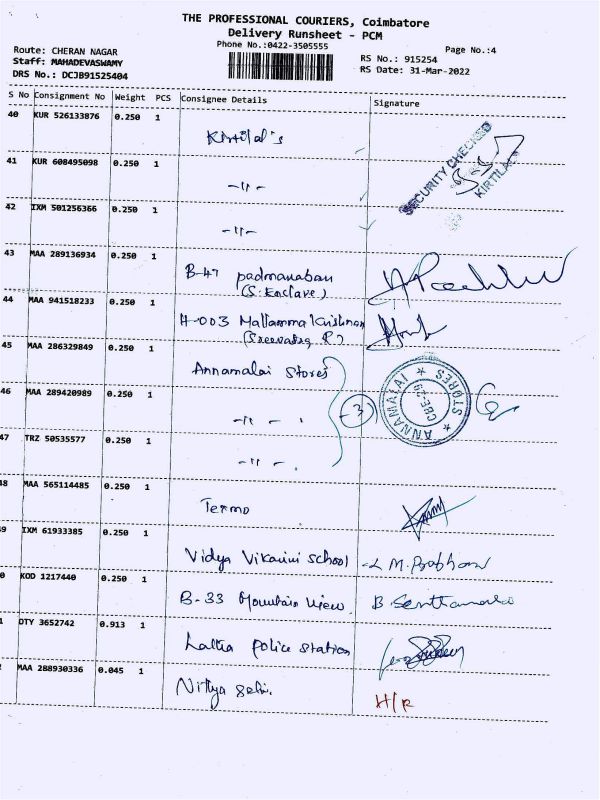 THE PROFESSIONAL COURIERS, Coimbatore
Delivery Runsheet - PCM
Phone No.:0422-3505555
Page No.:4
Route: CHERAN NAGAR
Staff: MAHADEVASWAMY
DRS No.: DCJB91525404
RS No.: 915254
RS Date: 31-Mar-2022
S No Consignment No Weight PCS Consignee Details Signature
40 KUR 526133876 0.250 1
Kirtilal's
SECURITY CHECKED
KIRTILAL
41 KUR 608495098 0.250 1
-11-
42 IXM 501256366 0.250 1
-11-
43 MAA 289136934 0.250 1
B-47 padmanaban
(S. Enclave)
44 MAA 941518233 0.250 1
H-003 Mallamma Krishnan
45 MAA 286329849 0.250 1
Annamalai Stores
(3)
ANNAMALAI ★ STORES ★
46 MAA 289420989 0.250 1
-11-
47 TRZ 50535577 0.250 1
-11-
48 MAA 565114485 0.250 1
Termo
9 IXM 61933385 0.250 1
Vidya Vikasini School
M. Prabhan
0 KOD 1217440 0.250 1
B-33 Mountain View.
1 OTY 3652742 0.913 1
Lalha Police Station
MAA 288930336 0.045 1
Nithya Selvi.
H/R